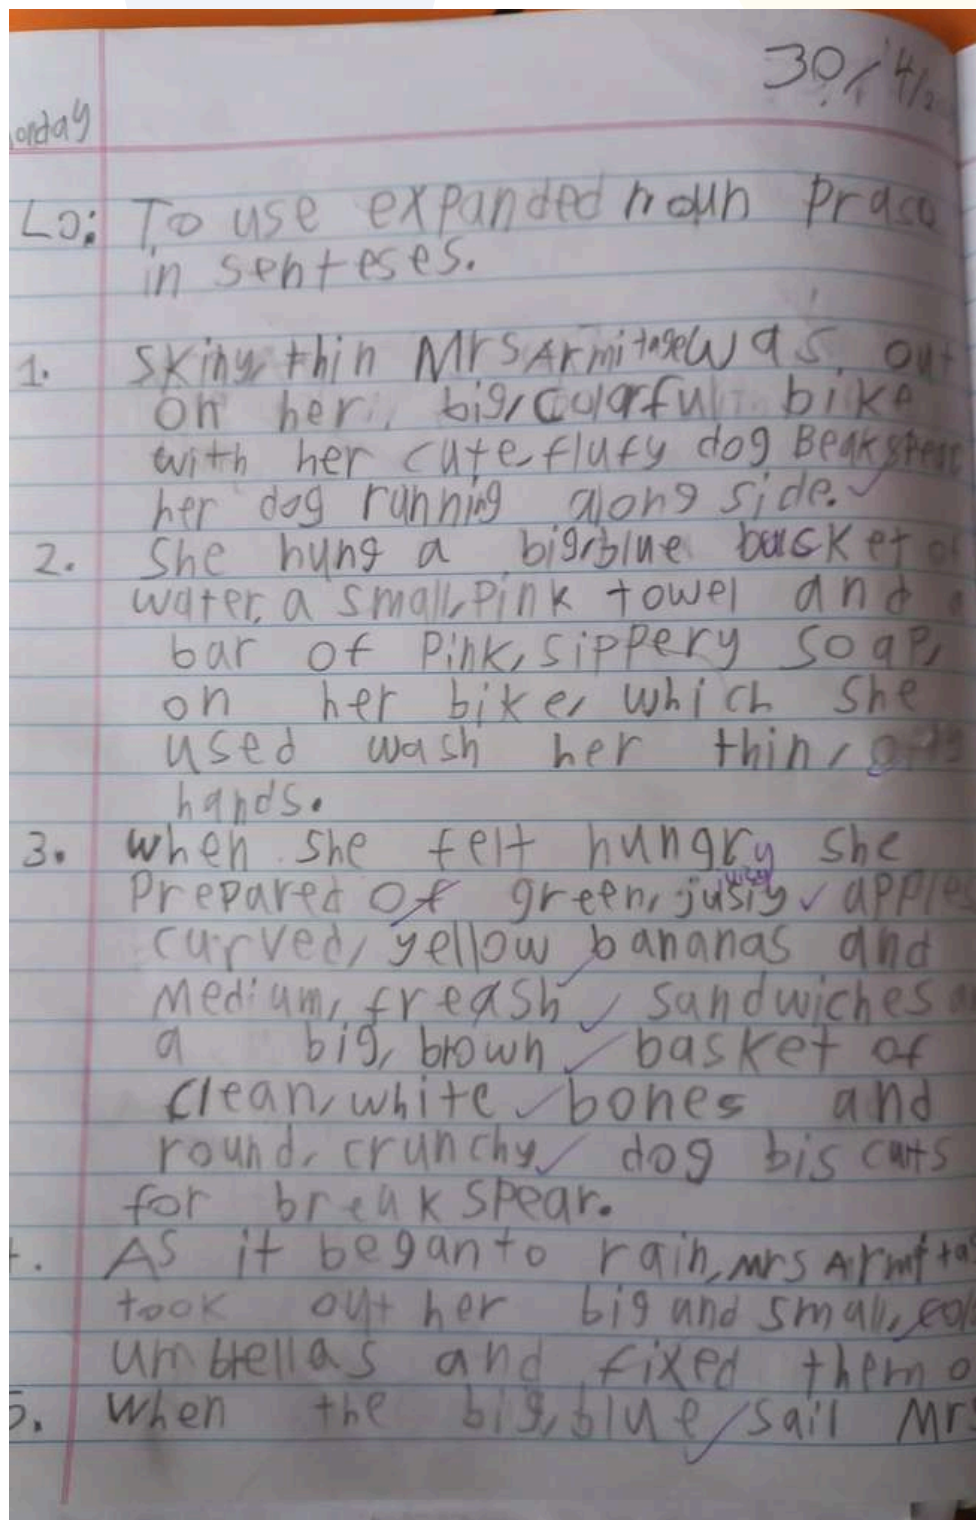 30/4/2
Lo: To use expanded noun
in senteses.
1. Skiny, thin Mrs Armitage was out
on her, big, colarful bike
with her cute, flufy dog
her dog running along side.
2. She hung a big, blue basket
water, a small, pink towel and
bar of pink, sippery soap,
on her bike, which she
used wash her thin,
hands.
3. when she felt hungry she
prepared of green, jusiy juicy apples
curved, yellow bananas and
medium, freash sandwiches
a big, brown basket of
clean, white bones and
round, crunchy dog biscuits
for breakspear.
As it began to rain, Mrs
took out her big and small,
umbrellas and fixed them
5. when the big, blue sail Mrs